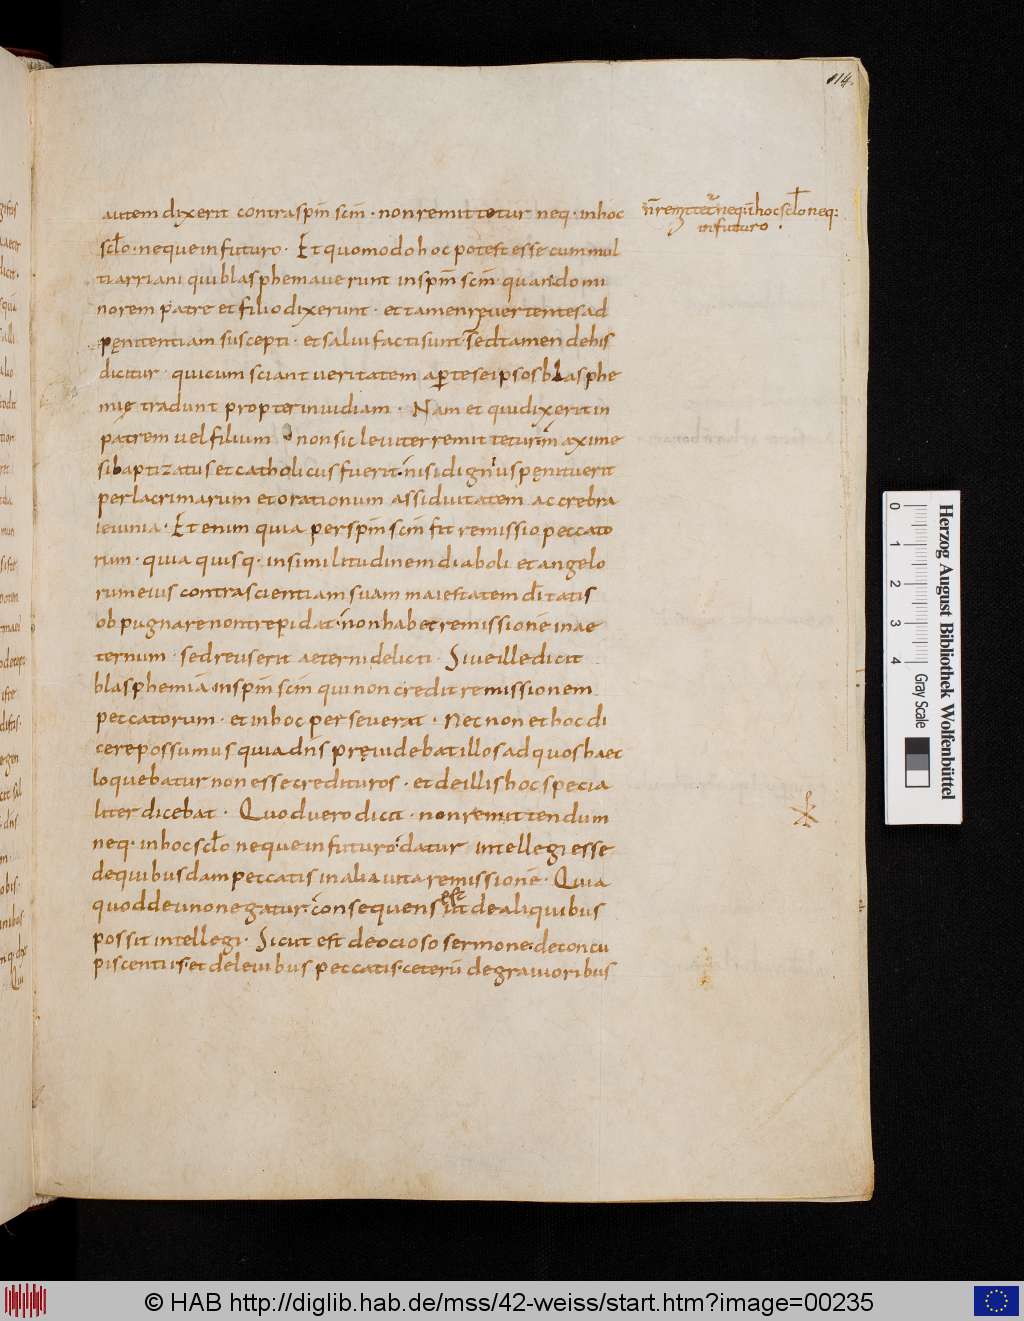 114.
autem dixerit contra spm̄ scm̄ · non remittetur neq· in hoc
sclo · neque in futuro · Et quomodo hoc potest esse cum mul
ti arriani qui blasphemaverunt in spm̄ scm̄ · quando mi
norem patre et filio dixerunt · et tamen revertentes ad
pęnitentiam suscepti · et salvi facti sunt · sed tamen de his
dicitur · qui cum sciant veritatem aperte se ipsos blasphe
mię tradunt propter invidiam · Nam et qui dixerit in
patrem vel filium non sic leviter remittetur · maxime
si baptizatus et catholicus fuerit · nisi dignus pęnituerit
per lacrimarum et orationum assiduitatem ac crebra
ieiunia · Et enim quia per spm̄ scm̄ fit remissio peccato
rum · quia quisq· in similitudinem diaboli et angelo
rum eius contra scientiam suam maiestatem ditatis
obpugnare non trepidat · non habet remissionē in ae
ternum · sed reus erit aeterni delicti · Sive ille dicit
blasphemiā in spm̄ scm̄ qui non credit remissionem
peccatorum · et in hoc perseverat · Nec non et hoc di
cere possumus quia dn̄s pręvidebat illos ad quos haec
loquebatur non esse credituros · et de illis hoc specia
liter dicebat · Quod vero dicit · non remittendum
neq· in hoc sclo neque in futuro · datur intellegi esse
de quibusdam peccatis in alia vita remissionē · Quia
quod de uno negatur · consequens est
ut de aliquibus
possit intellegi · Sicut est de ocioso sermone · de concu
piscentiis · et de levibus peccatis · ceterū de gravioribus
n̄ remittet̄ neq; in hoc sclo neq;
in futuro ·
Herzog August Bibliothek Wolfenbüttel
0 1 2 3 4
Gray Scale
© HAB http://diglib.hab.de/mss/42-weiss/start.htm?image=00235